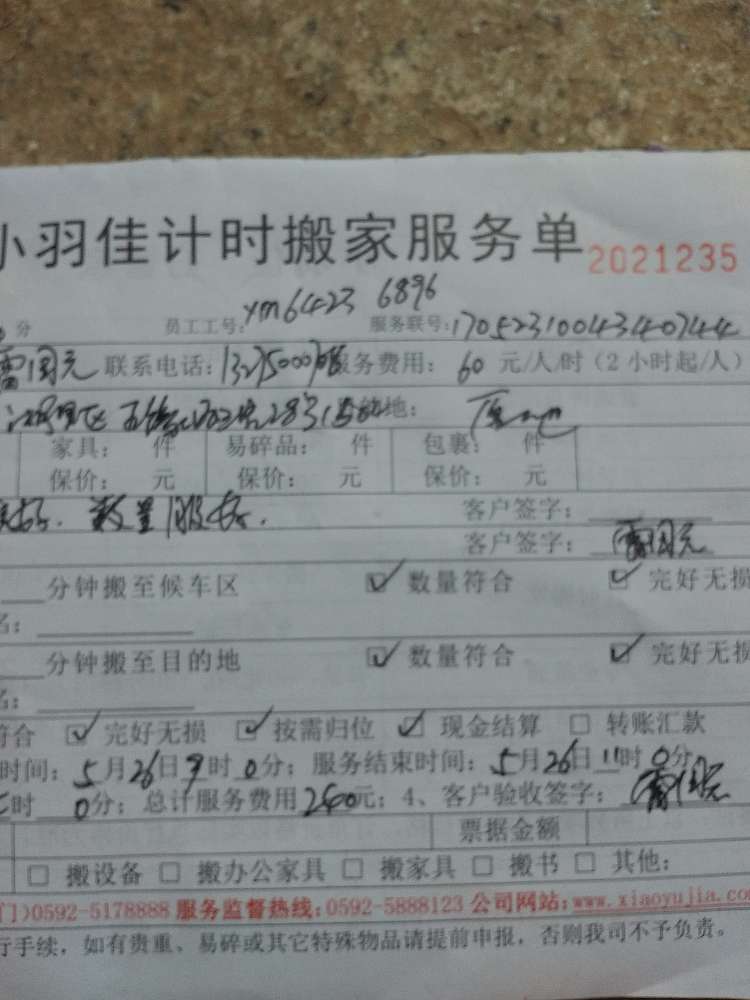 小羽佳计时搬家服务单 2021235
分 员工工号: ym6423 6896 服务联号: 1705231004340744
雷国元 联系电话: 服务费用: 60 元/人/时（2 小时起/人）
地:
家具: 件 易碎品: 件 包裹: 件
保价: 元 保价: 元 保价: 元
数量 客户签字:
客户签字: 雷国元
分钟搬至候车区 ☑ 数量符合 ☑ 完好无损
名:
分钟搬至目的地 ☑ 数量符合 ☑ 完好无损
名:
符合 ☑ 完好无损 ☑ 按需归位 ☑ 现金结算 □ 转账汇款
时间: 5月26日9时0分; 服务结束时间: 5月26日11时0分
时 0分; 总计服务费用240元; 4、客户验收签字: 雷国元
票据金额
□ 搬设备 □ 搬办公家具 □ 搬家具 □ 搬书 □ 其他:
门)0592-5178888 服务监督热线:0592-5888123 公司网站:www.xiaoyujia.co
行手续，如有贵重、易碎或其它特殊物品请提前申报，否则我司不予负责。